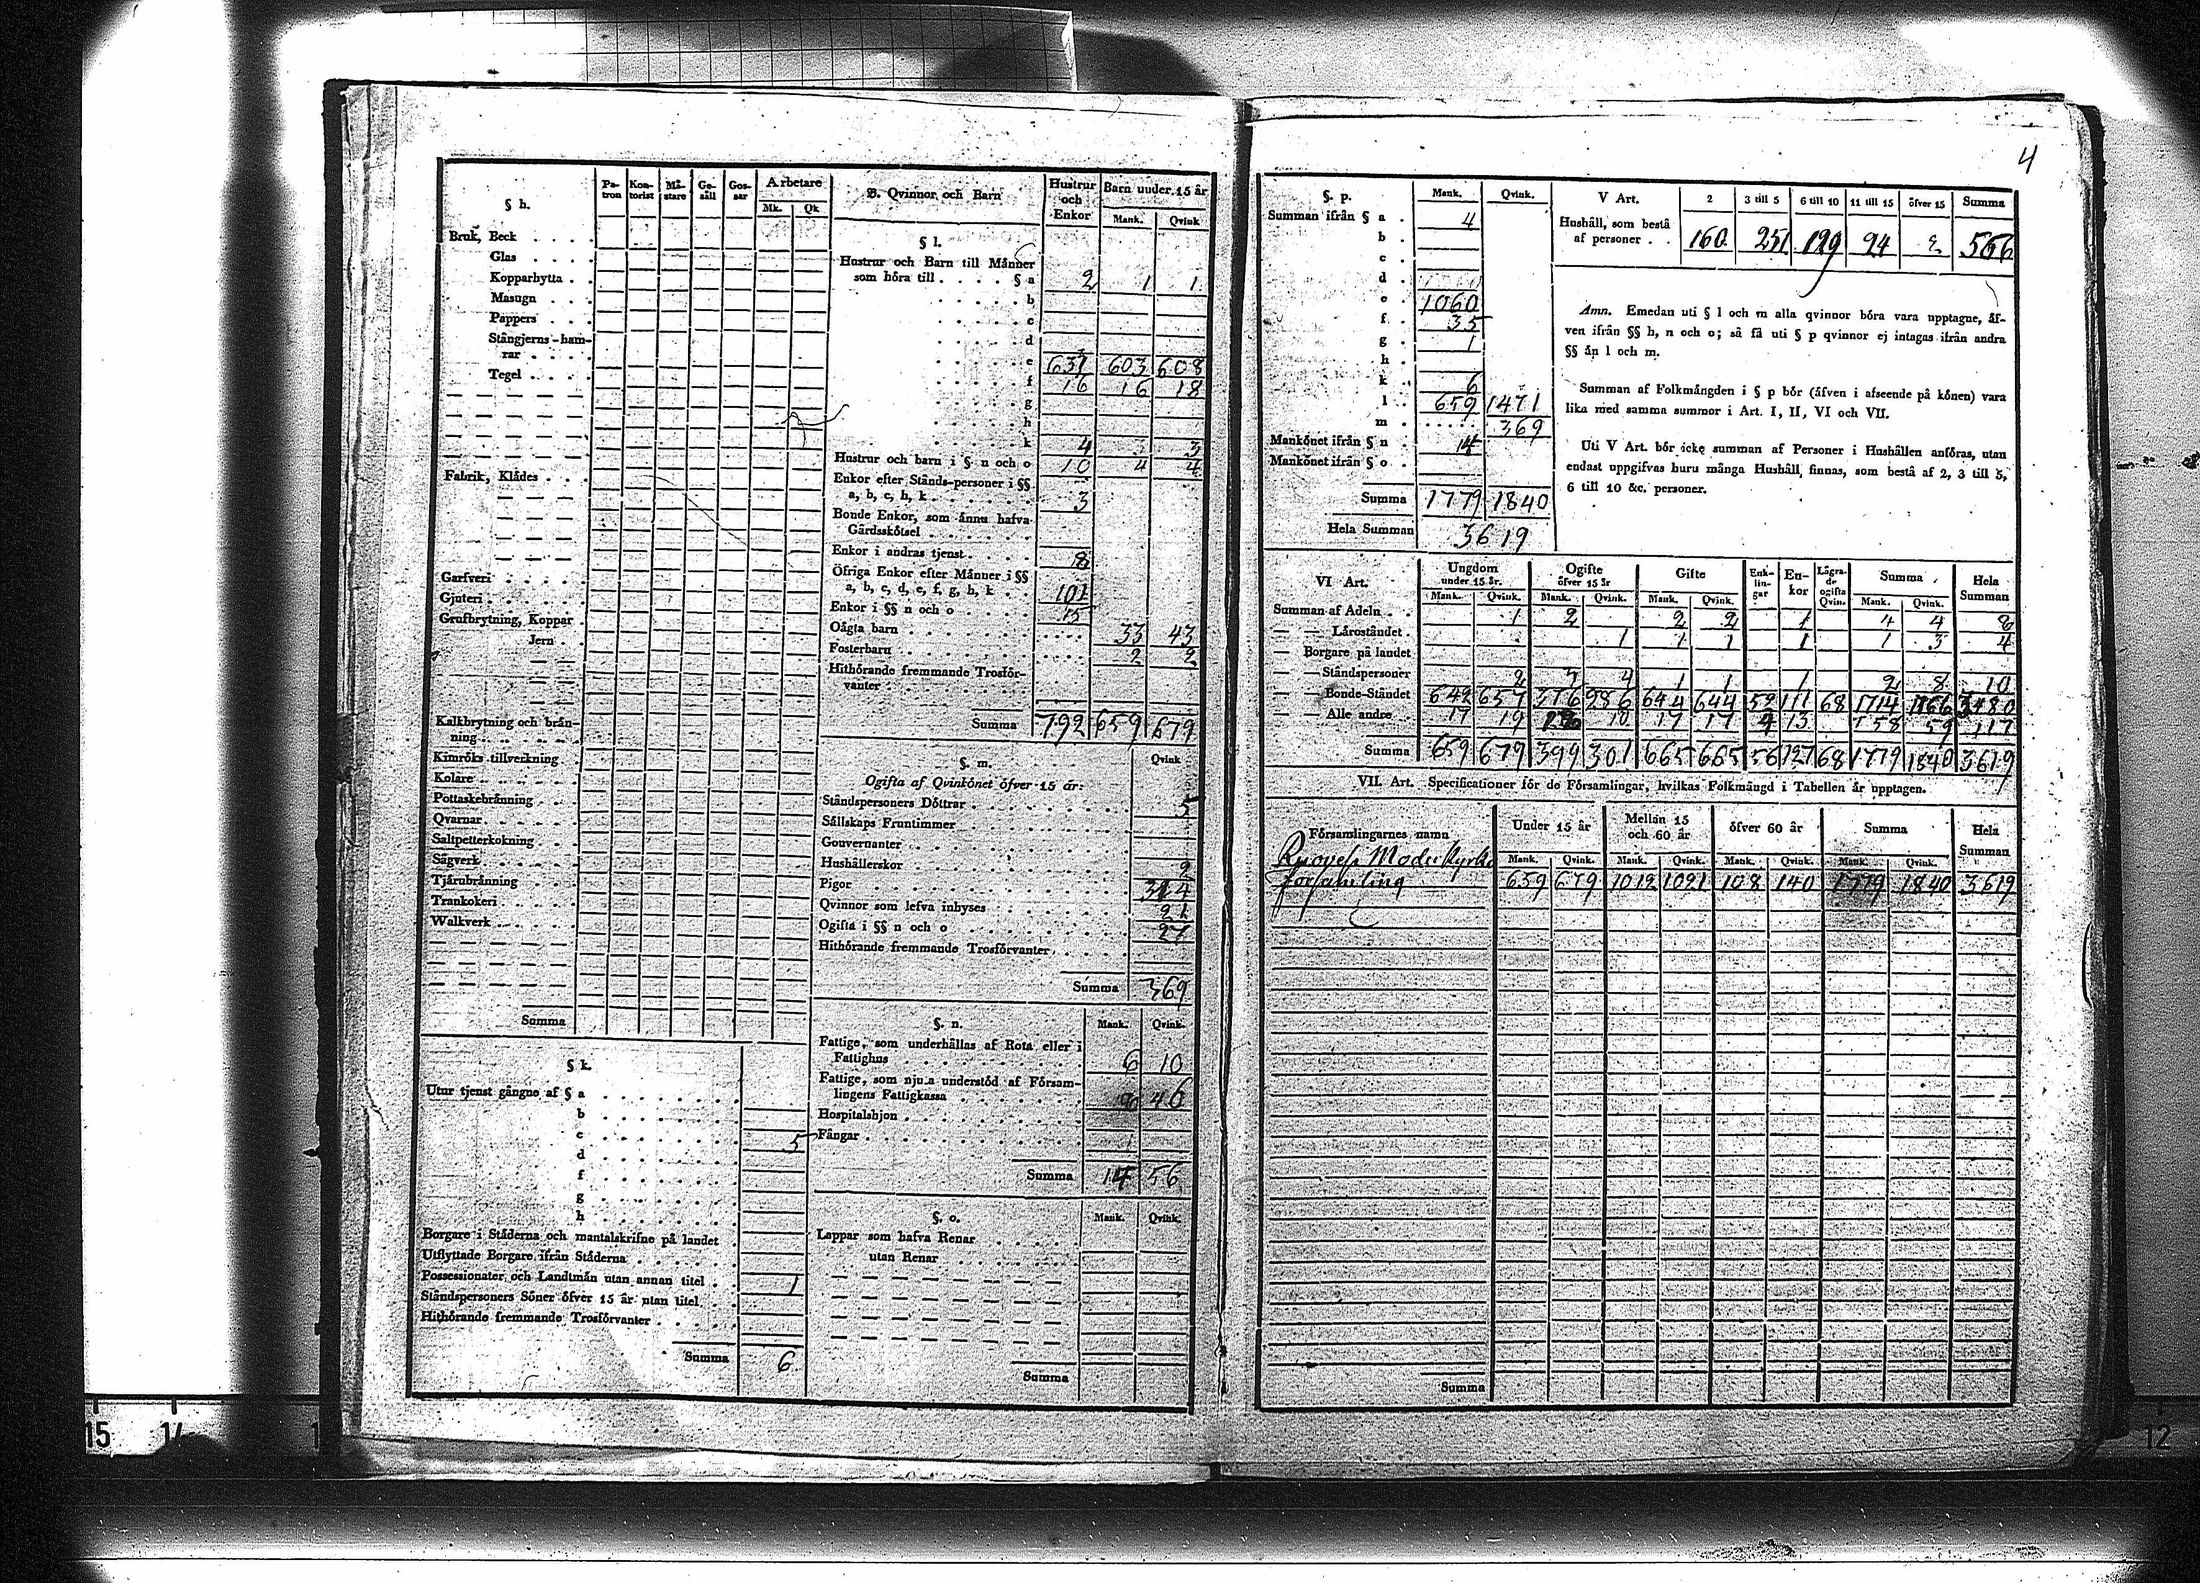 4
§ h.
Pa-tron Kon-torist Mä-stare Ge-säll Gos-sar Arbetare
Mk. Qk
Bruk, Beck
Glas
Kopparhytta
Masugn
Pappers
Stångjerns-ham-
rar
Tegel
Fabrik, Klädes
Garfveri
Gjuteri
Grufbrytning, Koppar
Jern
Kalkbrytning och brän-
ning
Kimröks tillverkning
Kolare
Pottaskebränning
Qvarnar
Saltpetterkokning
Sågverk
Tjärubränning
Trankokeri
Walkverk
Summa
§ k.
Utur tjenst gångne af § a
b
c 5
d
f
g
h
Borgare i Städerna och mantalskrifne på landet
Utflyttade Borgare ifrån Städerna
Possessionater och Landtmän utan annan titel 1
Ståndspersoners Söner öfver 15 år utan titel
Hithörande fremmande Trosförvanter
Summa 6
B. Qvinnor och Barn Hustrur och Enkor Barn under 15 år
Mank. Qvink
§ l.
Hustrur och Barn till Männer
som höra till § a 2 1 1
b
c
d
e 603 608
f 16 16 18
g
h
k 4 3 3
Hustrur och barn i § n och o 10 4 4
Enkor efter Stånds-personer i §§
a, b, c, h, k 3
Bonde Enkor, som ännu hafva
Gårdsskötsel
Enkor i andras tjenst 8
Öfriga Enkor efter Männer i §§
a, b, c, d, e, f, g, h, k 101
Enkor i §§ n och o 15
Oägta barn 33 43
Fosterbarn 2 2
Hithörande fremmande Trosför-
vanter
Summa 792 659 679
§. m. Qvink
Ogifta af Qvinkönet öfver 15 år:
Ståndspersoners Döttrar 5
Sällskaps Fruntimmer
Gouvernanter
Hushållerskor 2
Pigor 314
Qvinnor som lefva inhyses 21
Ogifta i §§ n och o 27
Hithörande fremmande Trosförvanter
Summa 369
§. n. Mank. Qvink.
Fattige, som underhållas af Rota eller i
Fattighus 6 10
Fattige, som njuta understöd af Försam-
lingens Fattigkassa 46
Hospitalshjon
Fångar
Summa 14 56
§. o. Mank. Qvink.
Lappar som hafva Renar
utan Renar
Summa
§. p. Mank. Qvink.
Summan ifrån § a 4
b
c
d
e 1060
f 35
g 1
h
k 6
l 659 1471
m 369
Mankönet ifrån § n 14
Mankönet ifrån § o
Summa 1779 1840
Hela Summan 3619
V Art. 2 3 till 5 6 till 10 11 till 15 öfver 15 Summa
Hushåll, som bestå
af personer 160 251 129 24 2 566
Anm. Emedan uti § l och m alla qvinnor böra vara upptagne, äf-
ven ifrån §§ h, n och o; så få uti § p qvinnor ej intagas ifrån andra
§§ än l och m.
Summan af Folkmängden i § p bör (äfven i afseende på könen) vara
lika med samma summor i Art. I, II, VI och VII.
Uti V Art. bör icke summan af Personer i Hushållen anföras, utan
endast uppgifvas huru många Hushåll, finnas, som bestå af 2, 3 till 5,
6 till 10 &c. personer.
VI Art. Ungdom under 15 år. Ogifte öfver 15 år Gifte Enk-lin-gar En-kor Lägra-de ogifta Qvin. Summa Hela Summan
Mank. Qvink. Mank. Qvink. Mank. Qvink. Mank. Qvink.
Summan af Adeln 1 2 2 2 1 4 4 8
— — Läroståndet 1 1 1 1 1 3 4
— Borgare på landet
— — Ståndspersoner 2 4 1 1 1 2 8 10
— — Bonde-Ståndet 642 657 376 286 644 644 52 111 68 1714 1766 3480
— — Alle andre 17 19 10 17 17 4 13 58 59 117
Summa 659 679 399 301 665 665 56 127 68 1779 1840 3619
VII. Art. Specificationer för de Församlingar, hvilkas Folkmängd i Tabellen är upptagen.
Församlingarnes namn Under 15 år Mellan 15 och 60 år öfver 60 år Summa Hela Summan
Moderkyrko Mank. Qvink. Mank. Qvink. Mank. Qvink. Mank. Qvink.
församling 659 679 1012 1021 108 140 1779 1840 3619
Summa
15 14 12